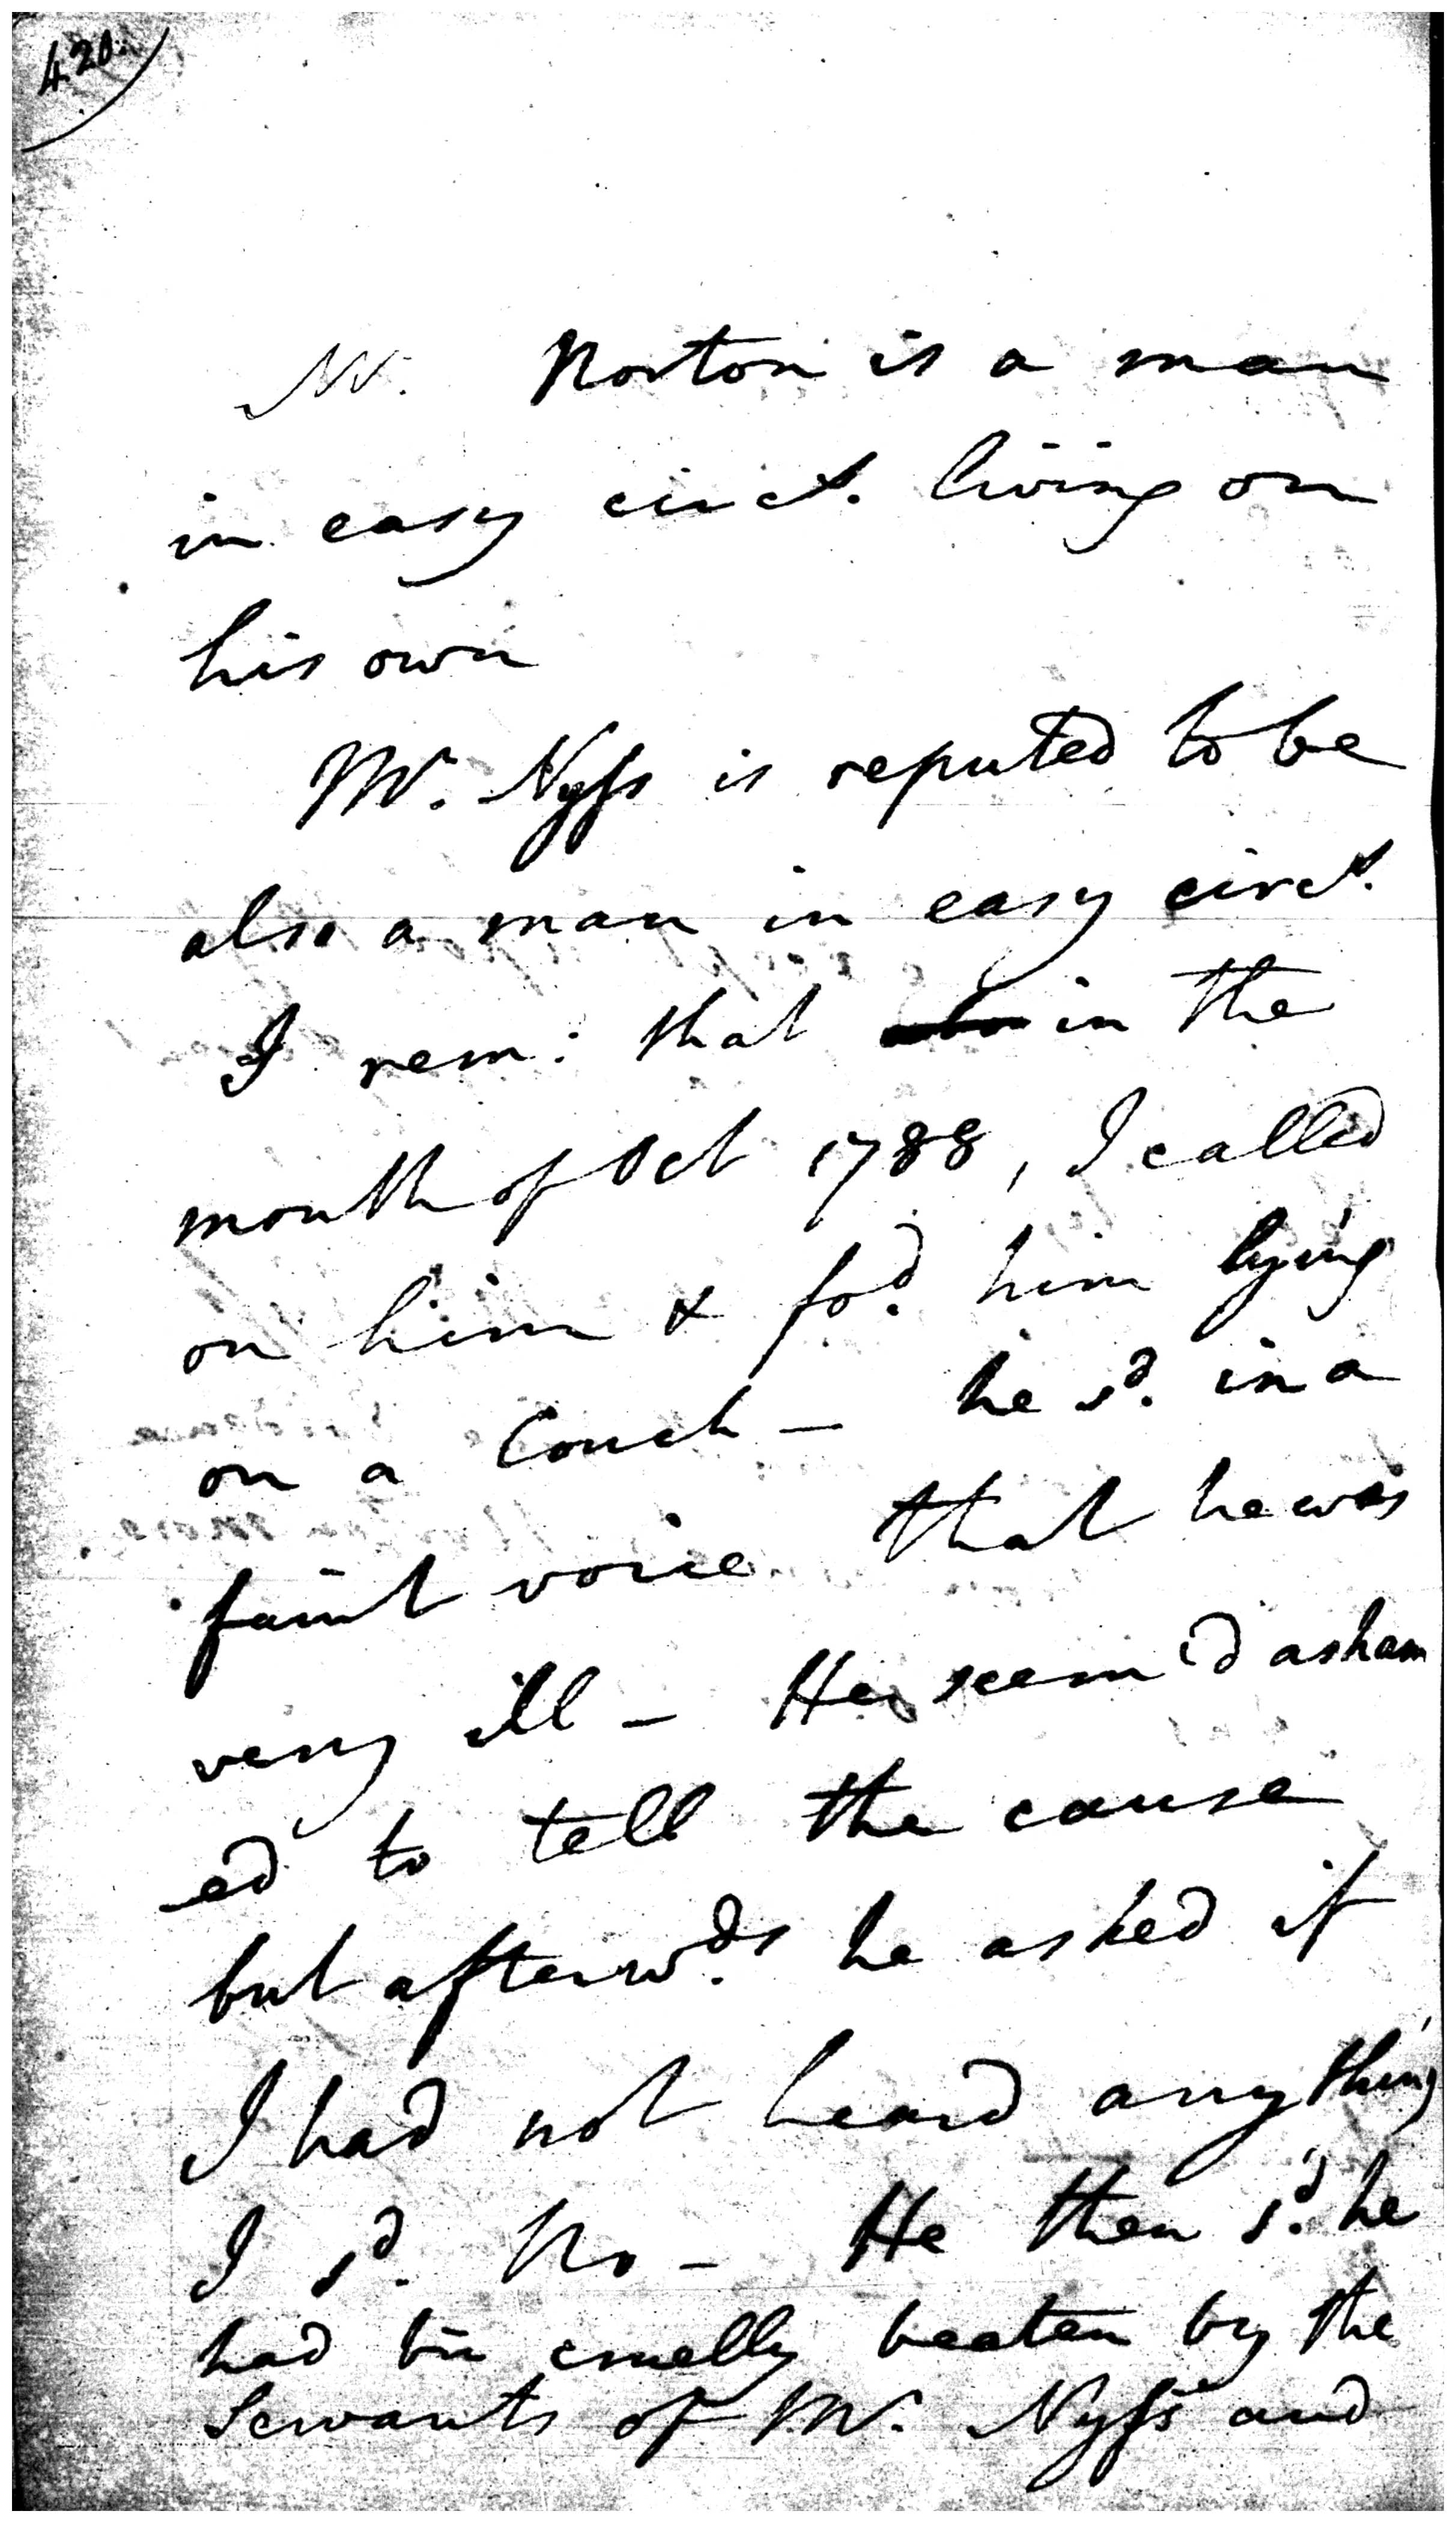 420.
Mr. Norton is a man
in easy circt. living on
his own
Mr. Nyss is reputed to be
also a man in easy circt.
I rem: that in the
month of Oct 1788, I called
on him & fod. him lying
on a Couch – he sd. in a
faint voice that he was
very ill – He seem'd asham
ed to tell the cause
but afterwds. he asked if
I had not heard anything
I sd. No – He then sd. he
had bin cruelly beaten by the
Servants of Mr. Nyss and